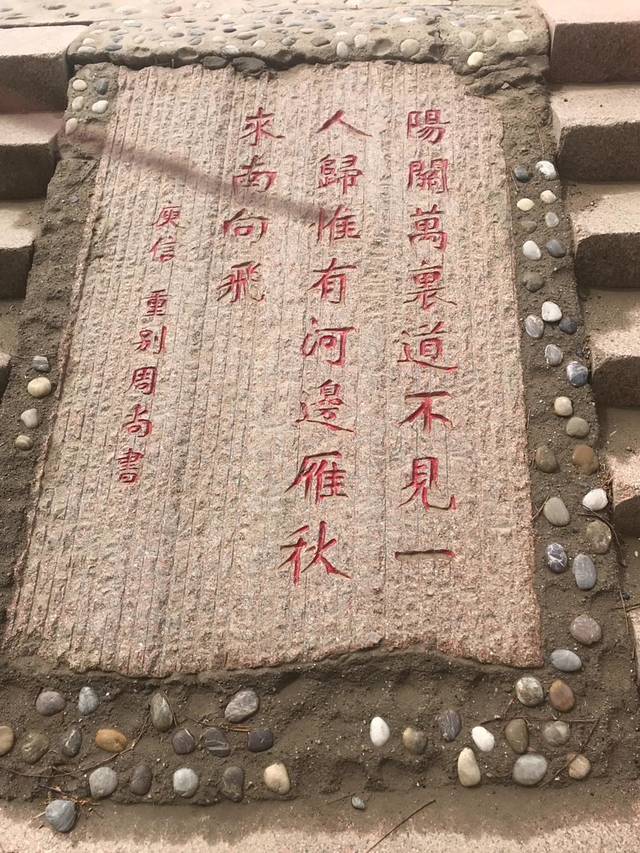 陽關萬裏道不見一
人歸惟有河邊雁秋
來南向飛
庾信 重别周尚書